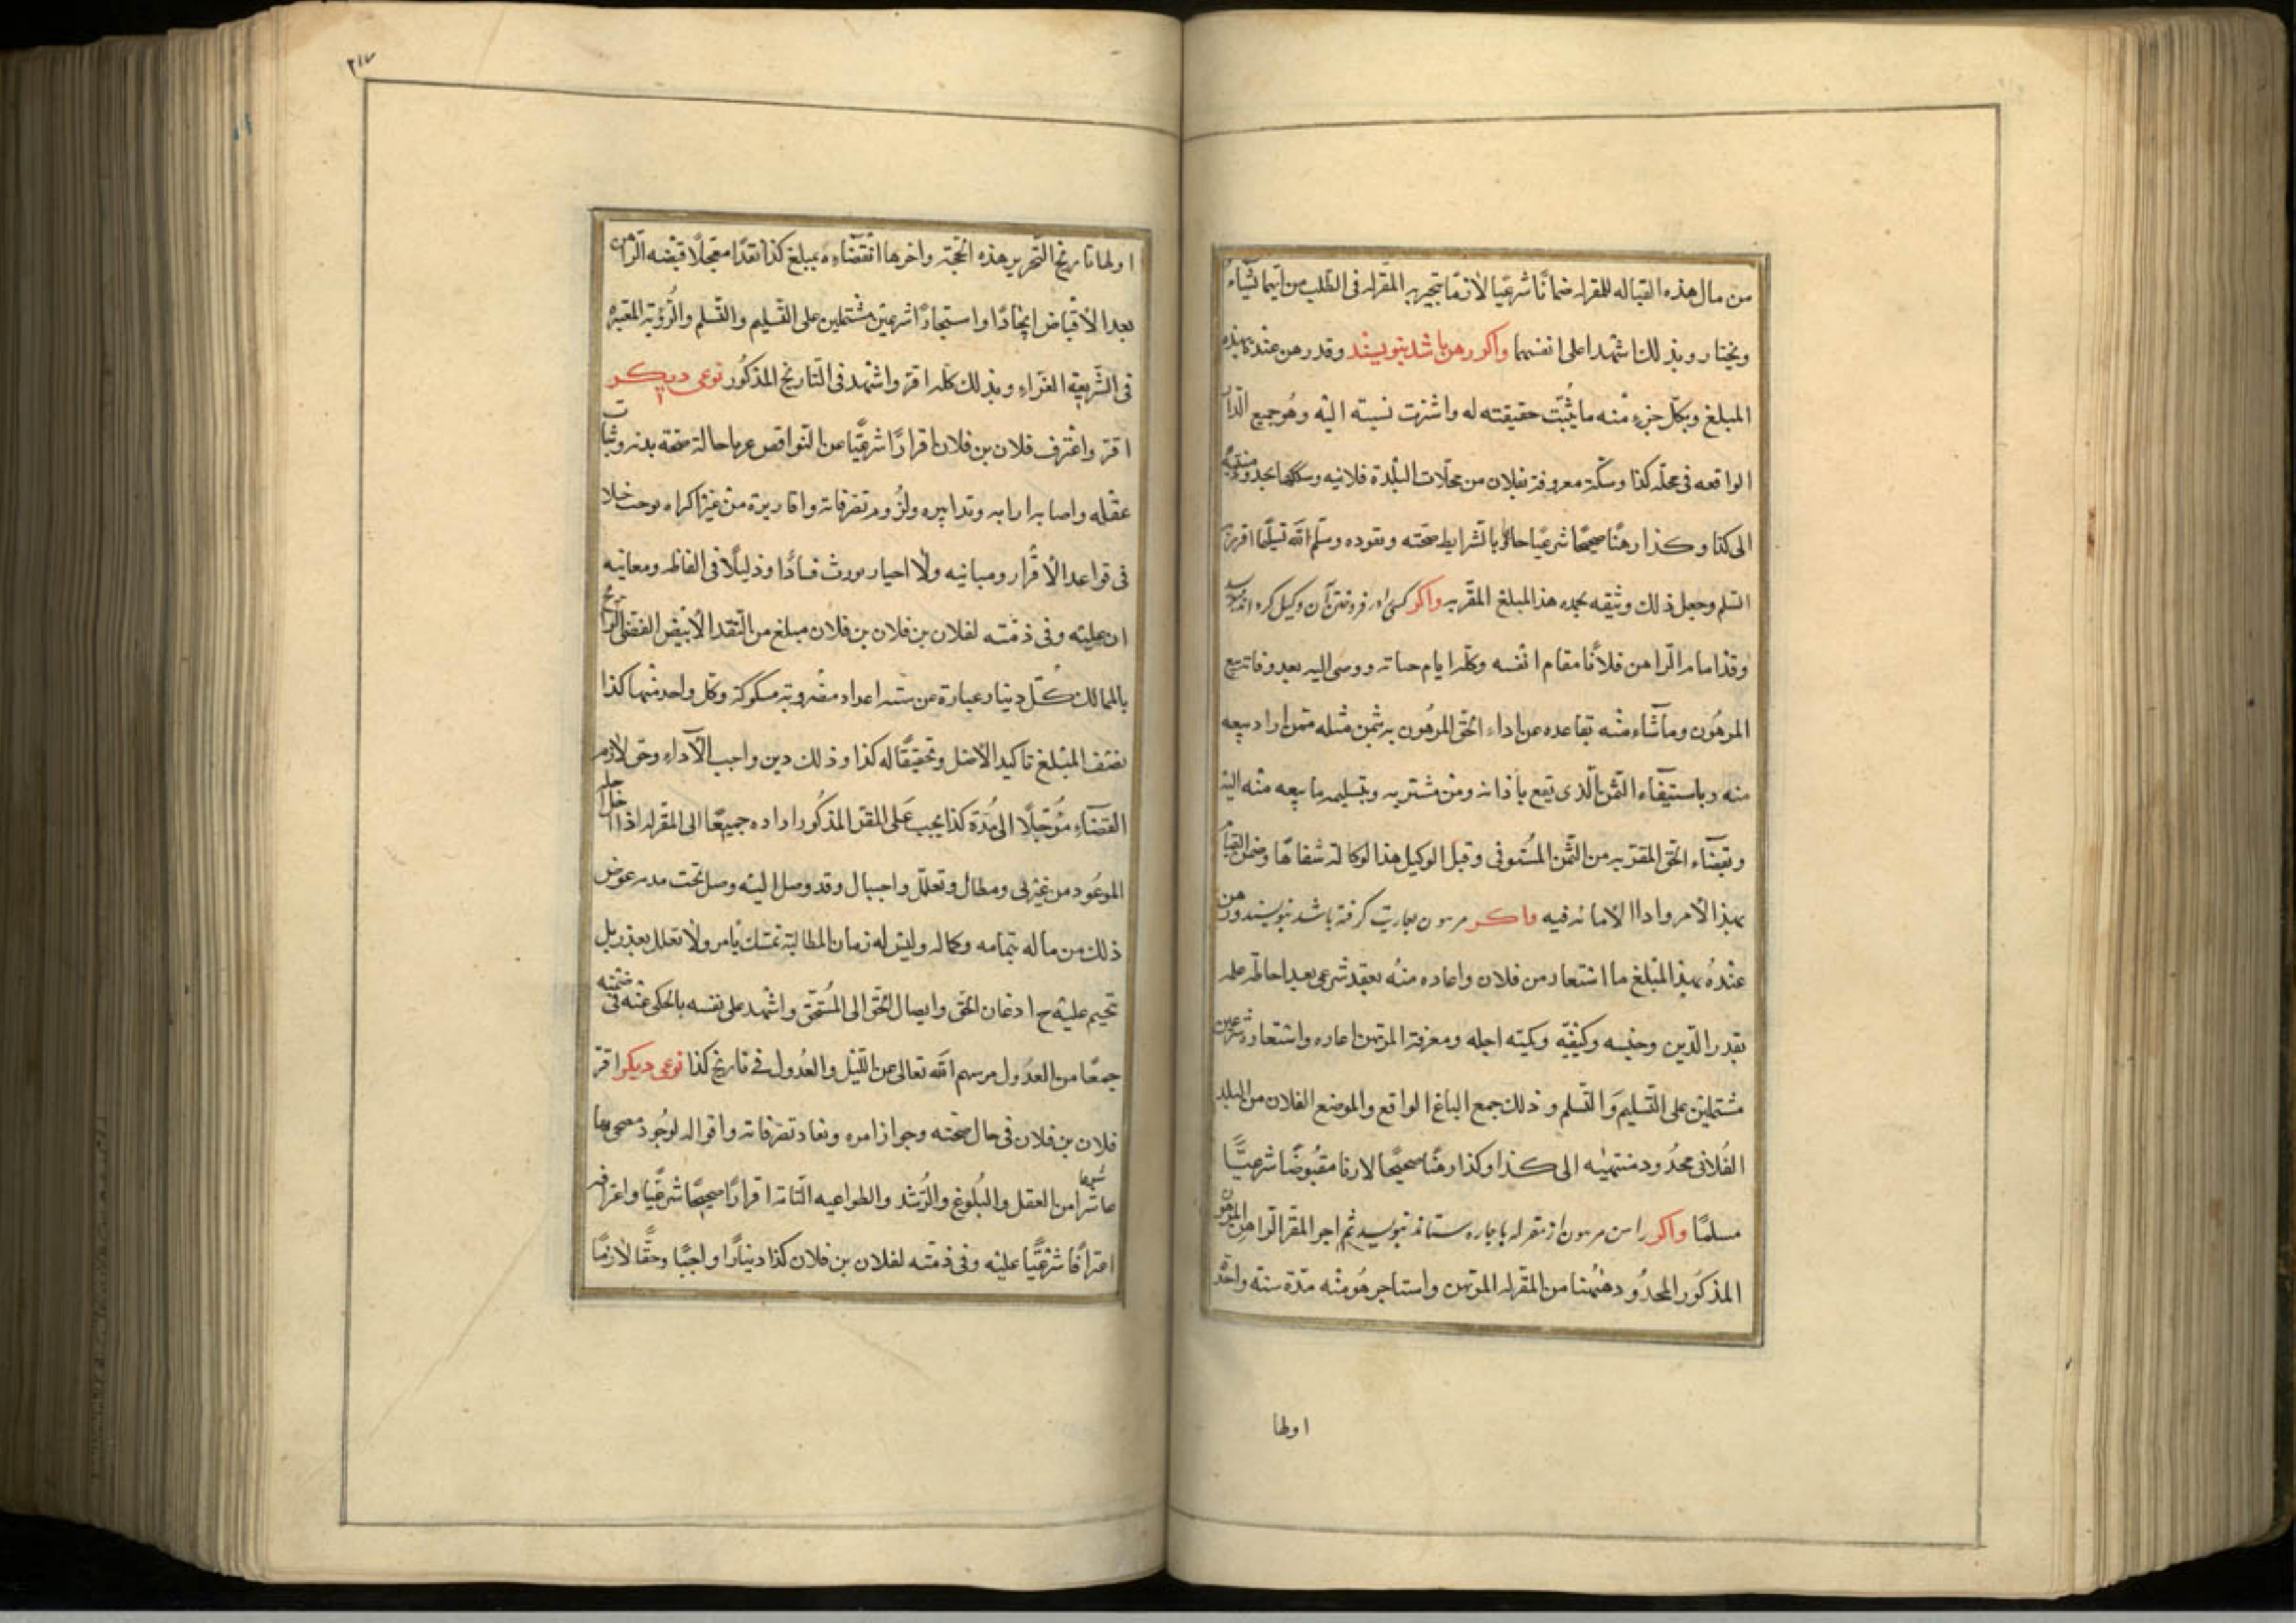 من مال هذه القباله للمقرله ضمانًا شرعيًا لازمًا بتجيزيه المقرله فى الطلب من ايهما يشاء
ويختار وبذلك اشهدا على انفسهما واكر رهن باشد بنويسند وقد رهن عنده بهذه
المبلغ وبكل جزء منه ما يثبت حقيقته له واشتهرت نسبته اليه وهو جميع الدار
الواقعه فى محله كذا وسكة معروفة بفلان من محلات البلدة فلانيه وسككها بحدود منتهيه
الى كذا وكذا رهنًا صحيحًا شرعيًا حاكمًا بالشرايط صحته ونقوده وسلم الله تسليمًا
التسلم وجعل ذلك وثيقه بحده هذا المبلغ المقربه واكر كسى را در فروختن آن وكيل كرده اند بنويسد
وقد اقام الراهن فلانًا مقام انفسه وكله ايام حياته ووصى اليه بعد وفاته بيع
المرهون وما شاء منه تقاعده عن اداء الحق المرهون به بثمن مثله ممن اراد بيعه
منه وباستيفاء الثمن الذى يقع باذانه ومن مشتريه وبتسليمه ما بيعه منه اليه
وبقضاء الحق المقربه من الثمن المستوفى وقبل الوكيل هذا لوكالة شفاها وضمن القيام
بهذا الامر واداا الامانه فيه واكر مرهون بعاريت كرفته باشد بنويسند ورهن
عنده بهذا المبلغ ما استعار من فلان واعاده منه بعقد شرعى بعد احاطه علمه
بقدر الدين وجنسه وكيفيه وكميته اجله ومعرفة المرتهن اعاره واستعاره شرعين
مشتملين على التسليم والتسلم وذلك جمع الباغ الواقع والموضع الفلان من البلد
الفلانى محدود منتهيه الى كذا وكذا رهنًا صحيحًا لازما مقبوضًا شرعيًا
مسلمًا واكر راهن مرهون از مقرله باجاره ستاند بنويسيد ثم اجر المقر الراهن المرهون
المذكور المحدود ضمنا من المقرله المرتهن واستاجر هو منه مدة سنة واحدة
اولها
٢١٧
اولها تاريخ التحرير هذه الحجة واخرها انقضاءه بمبلغ كذا نقدًا معجلًا قبضه الراهن
بعد الاقباض ايجادًا واستيجادًا شرعين مشتملين على التسليم والتسلم والرؤية المعتبره
فى الشريعة الغراء وبذلك كله اقر واشهد فى التاريخ المذكور نوعى ديكر
اقر واعترف فلان بن فلان اقرارًا شرعيًا عن النواقص عربا حالة صحة بدنه وثبات
عقله واصابه ارابه وتدابيره ولزوم تصرفاته واقاريره من غير اكراه يوجب خلا
فى قواعد الاقرار ومبانيه ولا احبار يورث فسادًا وذليلًا فى الفاظه ومعانيه
ان عليه وفى ذمته لفلان بن فلان بن فلان مبلغ من النقد الابيض الفضى الرايج
بالممالك كل دينار عبارة عن ستة اعداد مضروبة مسكوكة وكل واحد منها كذا
نصف المبلغ تاكيد الاصل وتحقيقًا له كذا وذلك دين واجب الاداء وحق لازم
القضاء مؤجلًا الى مدة كذا يجب على المقر المذكور اداده جميعًا الى المقرله اذا حل اجله
الموعود من غير لى ومطال وتعلل واحببال وقد وصل اليه وصل تحت مدم عوض
ذلك من ماله بتمامه وكماله وليس له زمان المطالبة تمسك بامر ولا تعلل بعذر بل
تحيم عليه ح ادغان الحق وايصال الحق الى المستحق واشهد على نفسه بالحكى عنه فى ضمنه
جمعًا من العدول مرسهم الله تعالى عن الليل والعدول فى تاريخ كذا نوعى ديكر اقر
فلان بن فلان فى حال صحته وجواز امره ونفاد تصرفاته واقواله لوجود مصححها
شرعها من العقل والبلوغ والرشد والطواعيه التاته اقرارًا صحيحًا شرعيًا واعترافه
اعترافًا شرعيًا عليه وفى ذمته لفلان بن فلان كذا دينارًا واجبًا وحقًا لازمًا